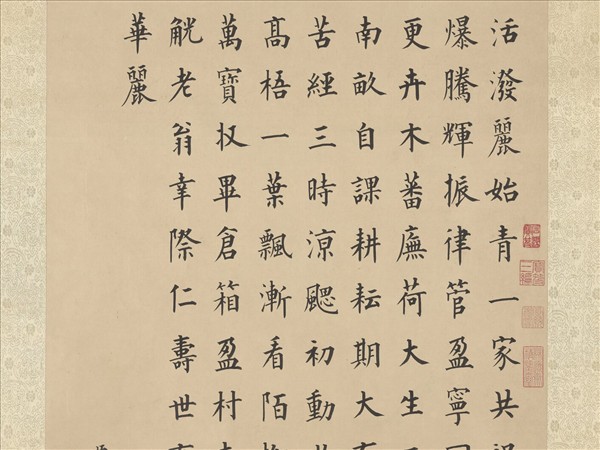 活潑麗始青一家共
爆騰輝振律管盈寧
更卉木蕃廡荷大生
南畝自課耕耘期大
苦經三時涼颸初動
高梧一葉飄漸看陌
萬寶收畢倉箱盈村
觥老翁幸際仁壽世
華麗